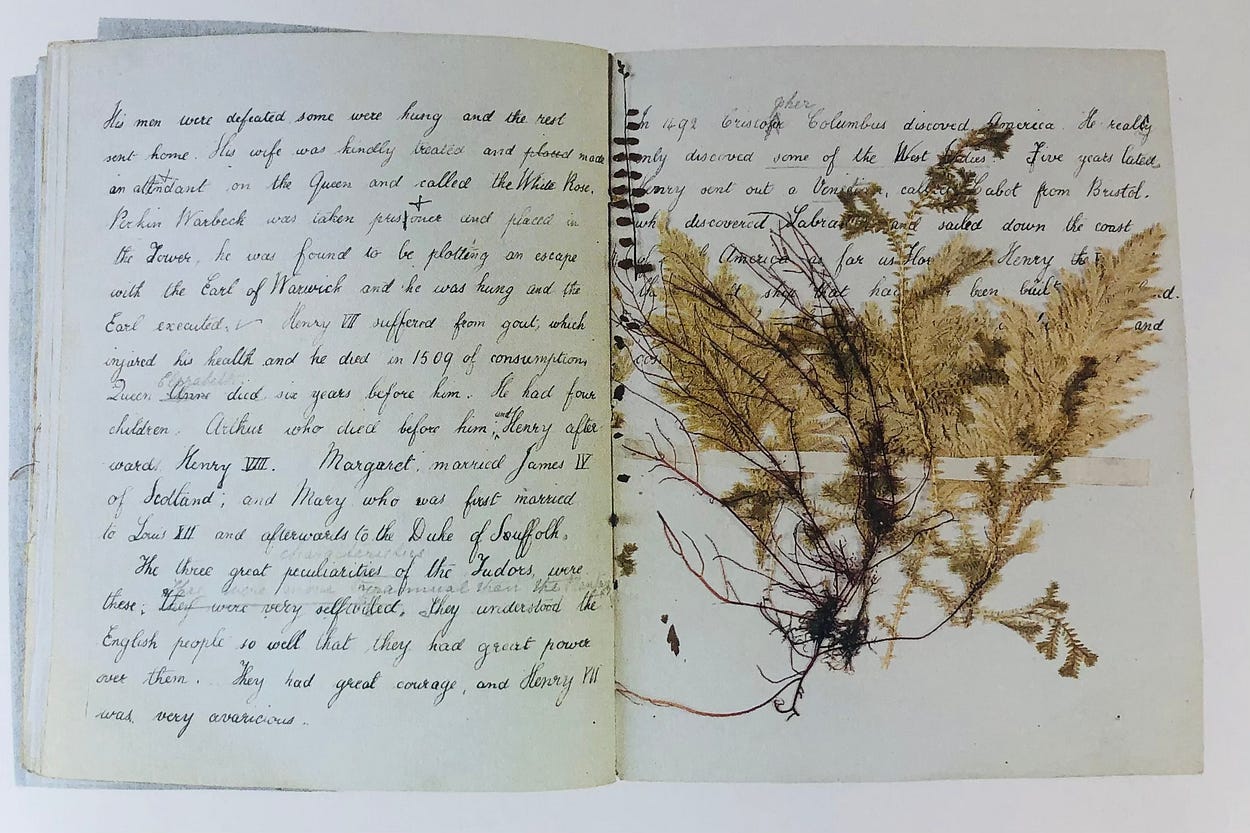 His men were defeated some were hung and the rest
sent home. His wife was kindly treated and placed made
an attendant on the Queen and called the White Rose.
Perkin Warbeck was taken prisoner and placed in
the Tower, he was found to be plotting an escape
with the Earl of Warwick and he was hung and the
Earl executed. Henry VII suffered from gout, which
injured his health and he died in 1509 of consumption,
Elizabeth
Queen Anne died six years before him. He had four
children. Arthur who died before him; and Henry after
wards Henry VIII. Margaret, married James IV
of Scotland; and Mary who was first married
to Louis XII and afterwards to the Duke of Souffolk.
characteristics
The three great peculiarities of the Tudors, were
They were more than the
these; they were very selfwilled, they understood the
English people so well that they had great power
over them. They had great courage, and Henry VII
was very avaricious.
pher
In 1492 Cristofir Columbus discoved America. He really
only discoved some of the West Indies. Five years later,
Henry sent out a called Cabot from Bristol.
who discovered Labrador and sailed down the coast
America as far as Henry the
ship that had been built
and